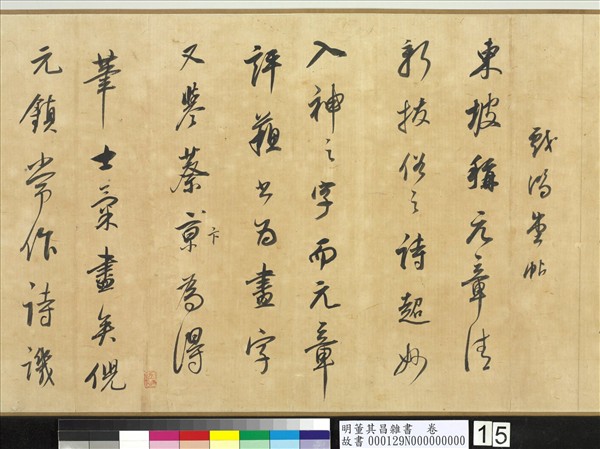 戲鴻堂帖
東坡稱元章清
新拔俗之詩超妙
入神之字而元章
評蘇書為畫字
又譽蔡京卞為得
筆士氣盡矣倪
元鎮常作詩譏
明董其昌雜書 卷
故書 000129N000000000
15